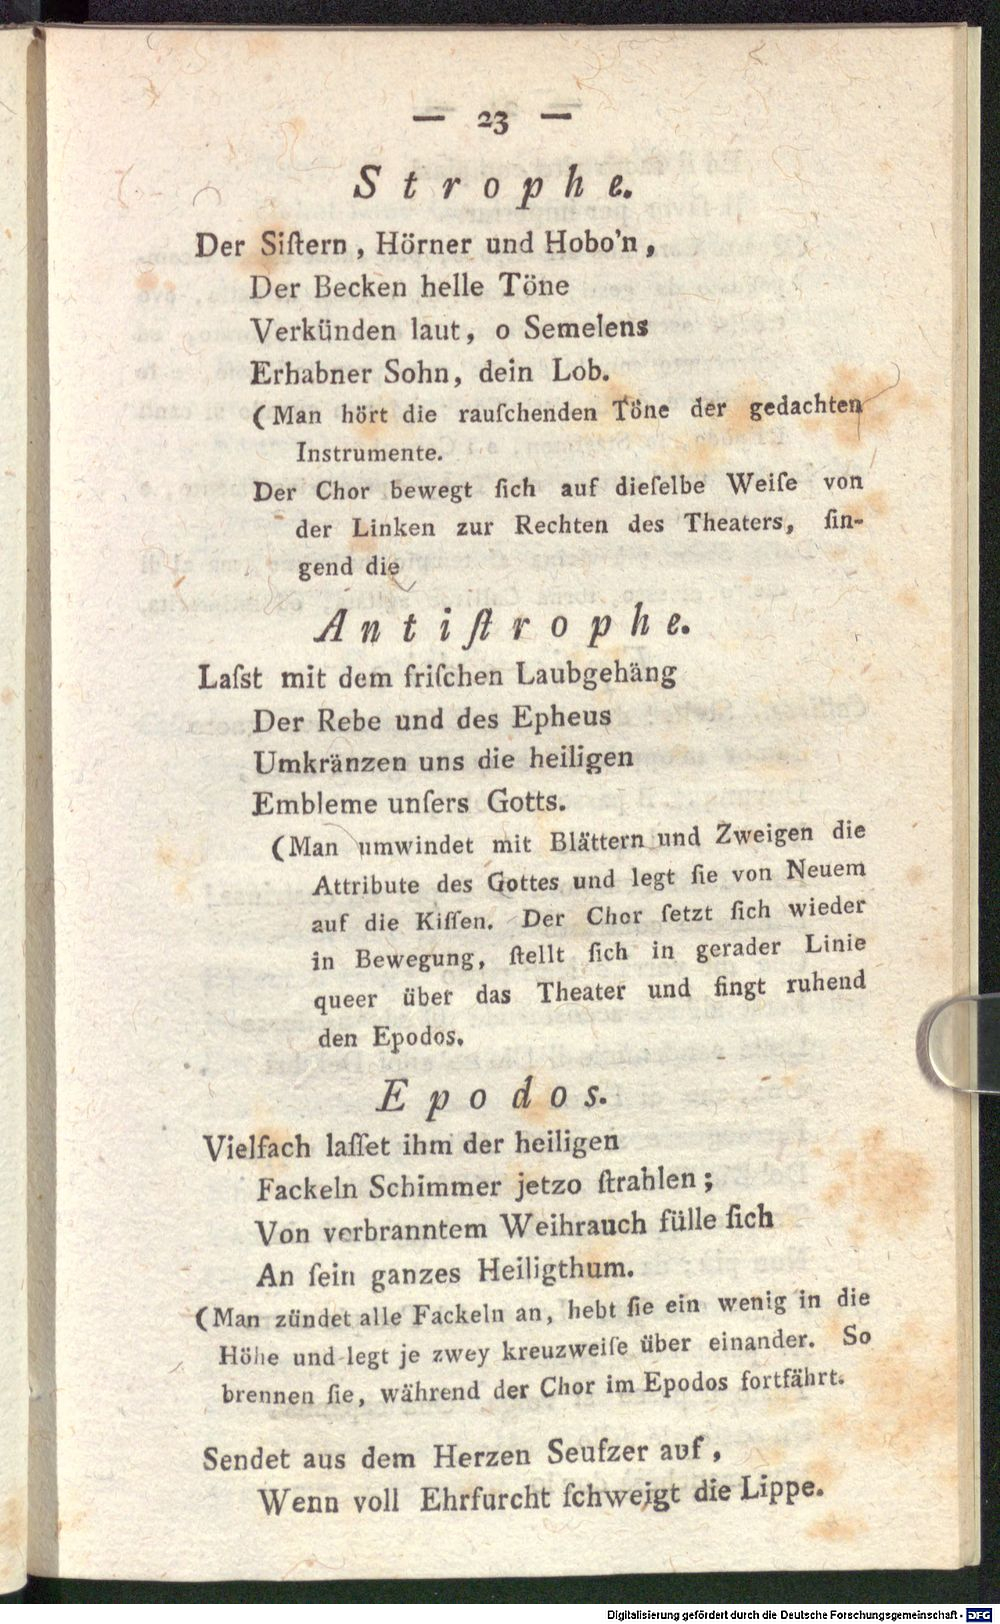 — 23 —
Strophe.
Der Siſtern, Hörner und Hobo'n,
Der Becken helle Töne
Verkünden laut, o Semelens
Erhabner Sohn, dein Lob.
(Man hört die rauſchenden Töne der gedachten
Instrumente.
Der Chor bewegt ſich auf dieſelbe Weiſe von
der Linken zur Rechten des Theaters, ſin-
gend die
Antiſtrophe.
Laſst mit dem friſchen Laubgehäng
Der Rebe und des Epheus
Umkränzen uns die heiligen
Embleme unſers Gotts.
(Man umwindet mit Blättern und Zweigen die
Attribute des Gottes und legt ſie von Neuem
auf die Kiſſen. Der Chor ſetzt ſich wieder
in Bewegung, ſtellt ſich in gerader Linie
queer über das Theater und ſingt ruhend
den Epodos.
Epodos.
Vielfach laſſet ihm der heiligen
Fackeln Schimmer jetzo ſtrahlen;
Von verbranntem Weihrauch fülle ſich
An ſein ganzes Heiligthum.
(Man zündet alle Fackeln an, hebt ſie ein wenig in die
Höhe und legt je zwey kreuzweiſe über einander. So
brennen ſie, während der Chor im Epodos fortfährt.
Sendet aus dem Herzen Seufzer auf,
Wenn voll Ehrfurcht ſchweigt die Lippe.
Digitalisierung gefördert durch die Deutsche Forschungsgemeinschaft - DFG